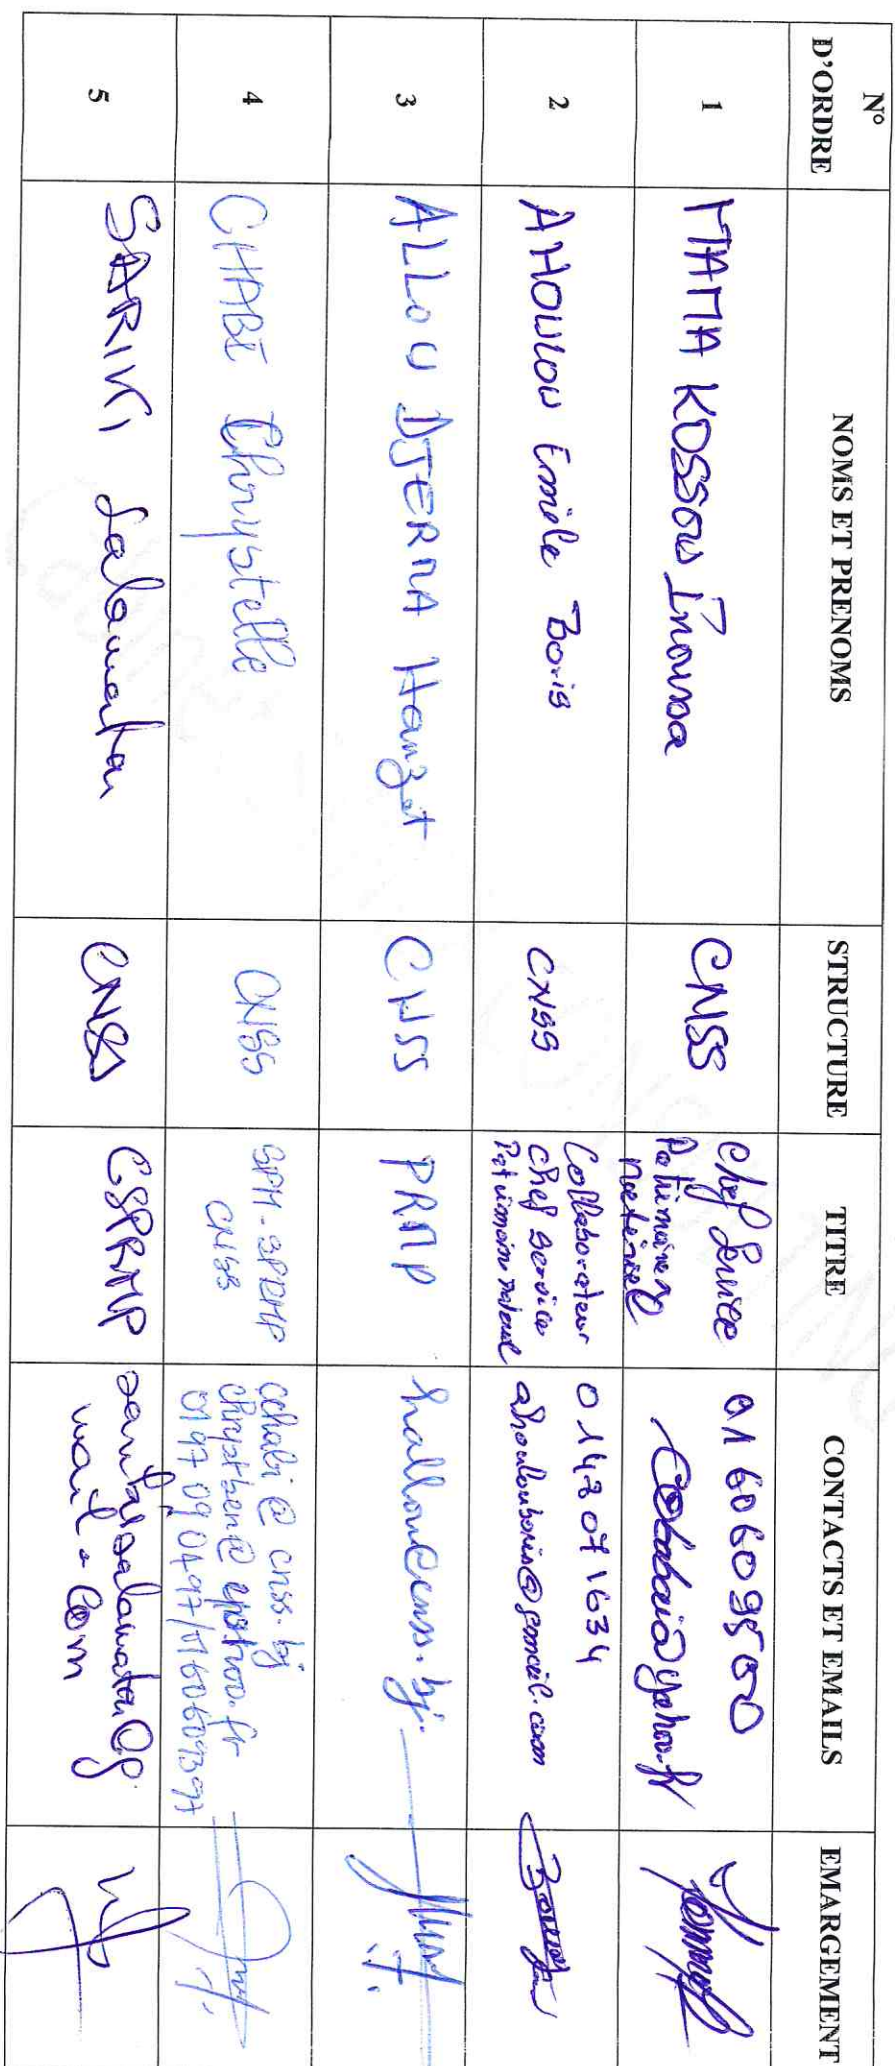 N° D'ORDRE
NOMS ET PRENOMS
STRUCTURE
TITRE
CONTACTS ET EMAILS
EMARGEMENT
1
MAMA KOSSOU Inoussa
CNSS
Chef Service
Patrimoine
Matériel
01 60609500
@yahoo.fr
2
AHOULOU Emile Boris
CNSS
Collaborateur
Chef Service
Patrimoine matériel
0142071634
ahoulouboris@gmail.com
3
ALLOU DJERMA Hanzat
CNSS
PRMP
hallou@cnss.bj
4
CHABI Chrystelle
CNSS
SPM-SPRMP
CNSS
cchabi@cnss.bj
0197090497/0160609397
5
SARIKI Salamatou
CNSS
CSPRMP
mail.com